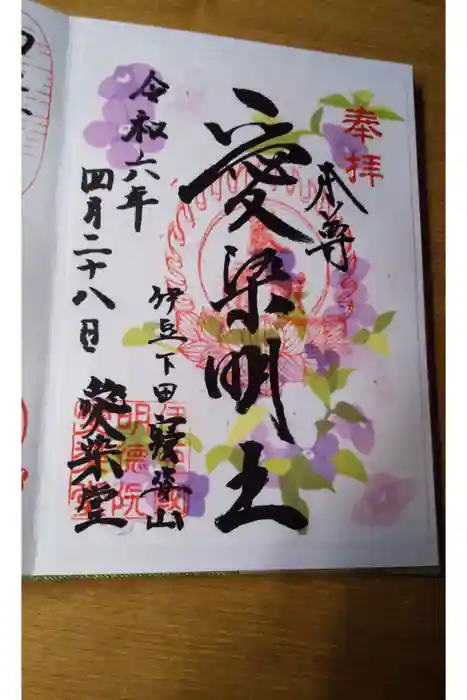 奉拝
本尊
愛染明王
伊豆下田寝姿山
令和六年
四月二十八日
愛染堂
明德院